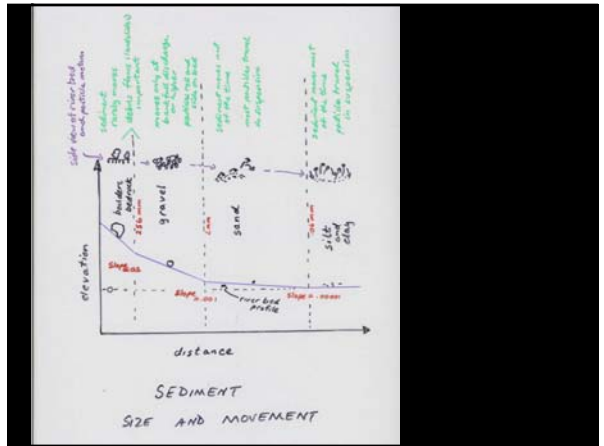 side view of river bed
and particle motion
sediment
rarely moves
debris flows (landslides)
important
moves only at
bankfull discharge
or higher
particles roll and
slide on bed
sediment moves most
of the time
most particles travel
in suspension
sediment moves most
of the time
particles travel
in suspension
boulders
bedrock
256 mm
gravel
2 mm
sand
.06 mm
silt
and
clay
elevation
slope
slope
.001
river bed
profile
slope = .00001
distance
SEDIMENT
SIZE AND MOVEMENT